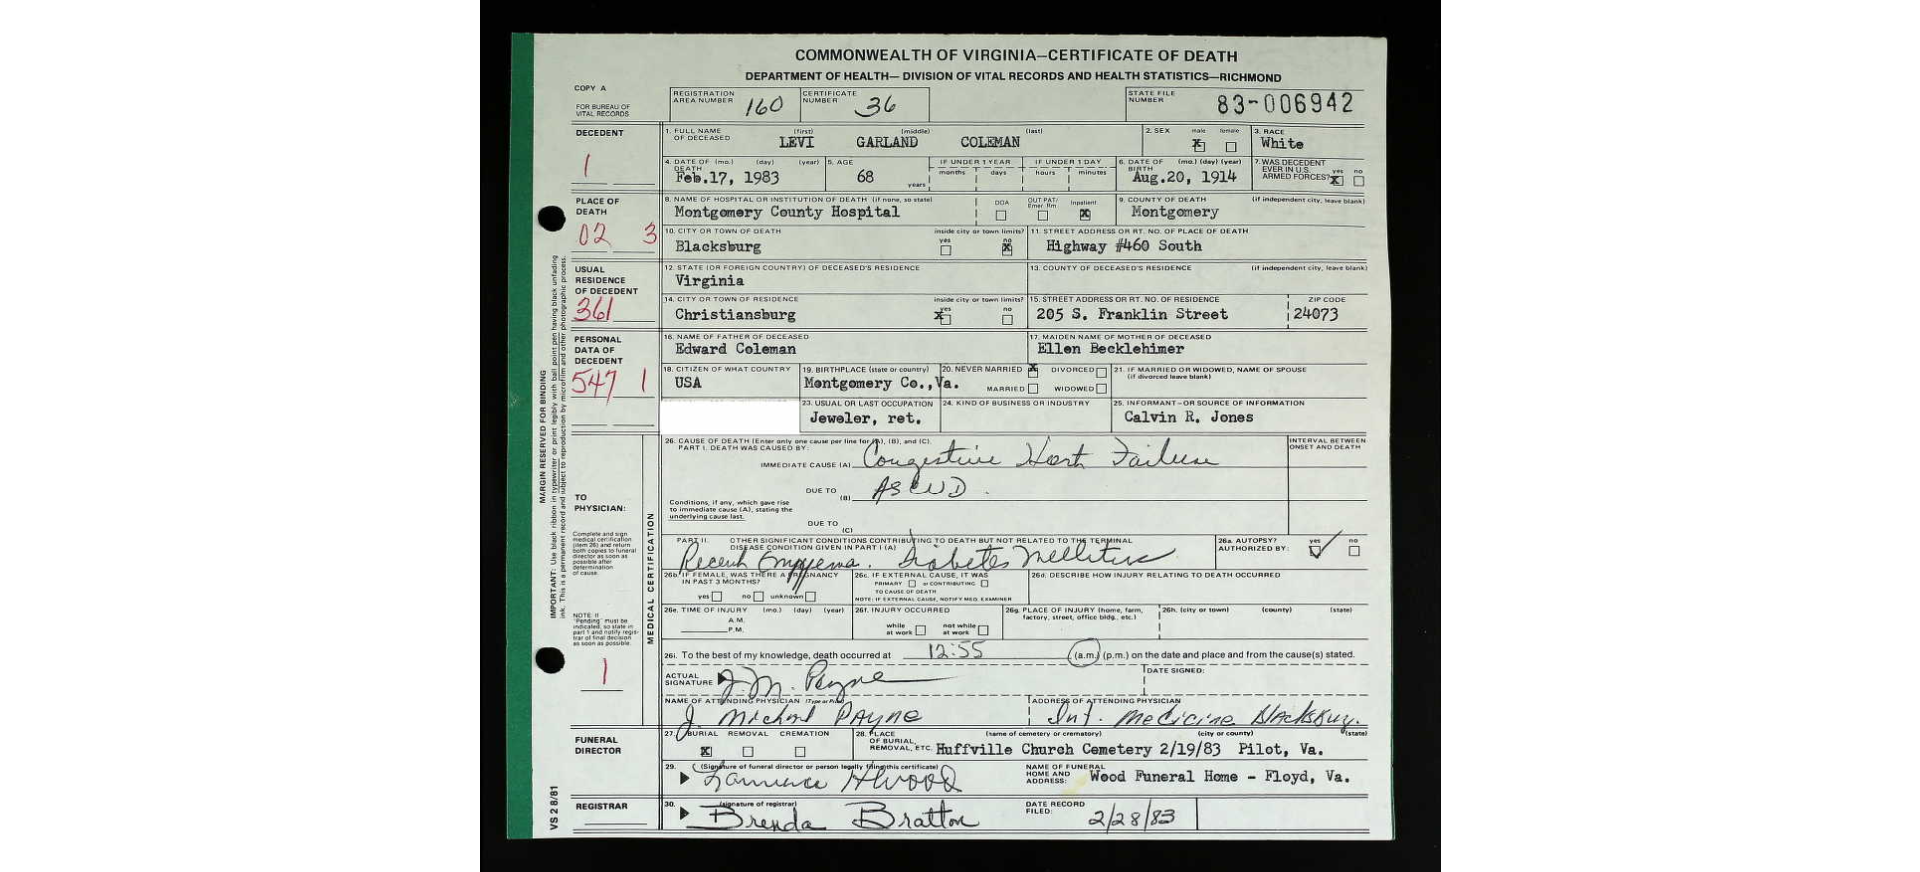 COMMONWEALTH OF VIRGINIA—CERTIFICATE OF DEATH
DEPARTMENT OF HEALTH— DIVISION OF VITAL RECORDS AND HEALTH STATISTICS—RICHMOND
COPY A
FOR BUREAU OF VITAL RECORDS
REGISTRATION AREA NUMBER 160
CERTIFICATE NUMBER 36
STATE FILE NUMBER 83-006942
DECEDENT
1
1. FULL NAME OF DECEASED (first) (middle) (last)
LEVI GARLAND COLEMAN
2. SEX male X female
3. RACE
White
4. DATE OF DEATH (mo.) (day) (year)
Feb.17, 1983
5. AGE
68 years
IF UNDER 1 YEAR months days
IF UNDER 1 DAY hours minutes
6. DATE OF BIRTH (mo.) (day) (year)
Aug.20, 1914
7. WAS DECEDENT EVER IN U.S. ARMED FORCES? yes X no
PLACE OF DEATH
02 3
8. NAME OF HOSPITAL OR INSTITUTION OF DEATH (if none, so state)
Montgomery County Hospital
DOA OUT PAT/ Emer. Rm Inpatient X
9. COUNTY OF DEATH (if independent city, leave blank)
Montgomery
10. CITY OR TOWN OF DEATH inside city or town limits? yes no X
Blacksburg
11. STREET ADDRESS OR RT. NO. OF PLACE OF DEATH
Highway #460 South
USUAL RESIDENCE OF DECEDENT
361
12. STATE (OR FOREIGN COUNTRY) OF DECEASED'S RESIDENCE
Virginia
13. COUNTY OF DECEASED'S RESIDENCE (if independent city, leave blank)
14. CITY OR TOWN OF RESIDENCE inside city or town limits? yes X no
Christiansburg
15. STREET ADDRESS OR RT. NO. OF RESIDENCE
205 S. Franklin Street
ZIP CODE
24073
PERSONAL DATA OF DECEDENT
547 1
16. NAME OF FATHER OF DECEASED
Edward Coleman
17. MAIDEN NAME OF MOTHER OF DECEASED
Ellen Becklehimer
18. CITIZEN OF WHAT COUNTRY
USA
19. BIRTHPLACE (state or country)
Montgomery Co.,Va.
20. NEVER MARRIED X DIVORCED
MARRIED WIDOWED
21. IF MARRIED OR WIDOWED, NAME OF SPOUSE (if divorced leave blank)
23. USUAL OR LAST OCCUPATION
Jeweler, ret.
24. KIND OF BUSINESS OR INDUSTRY
25. INFORMANT—OR SOURCE OF INFORMATION
Calvin R. Jones
MARGIN RESERVED FOR BINDING
IMPORTANT: Use black ribbon in typewriter or print legibly with ball point pen having black unfading
ink. This is a permanent record and subject to reproduction by microfilm and other photographic process.
VS 2 8/81
TO PHYSICIAN:
Complete and sign medical certification (item 26) and return both copies to funeral director as soon as possible after determination of cause.
NOTE: If "Pending" must be indicated, so state in part 1 and notify registrar of final decision as soon as possible.
1
MEDICAL CERTIFICATION
26. CAUSE OF DEATH (Enter only one cause per line for (A), (B), and (C).
PART I. DEATH WAS CAUSED BY:
INTERVAL BETWEEN ONSET AND DEATH
IMMEDIATE CAUSE (A) Congestive Heart Failure
DUE TO (B) ASCVD.
Conditions, if any, which gave rise to immediate cause (A), stating the underlying cause last.
DUE TO (C)
PART II. OTHER SIGNIFICANT CONDITIONS CONTRIBUTING TO DEATH BUT NOT RELATED TO THE TERMINAL DISEASE CONDITION GIVEN IN PART I (A)
Recent Empyema. Diabetes Mellitus
26a. AUTOPSY? AUTHORIZED BY: yes ✓ no
26b. IF FEMALE, WAS THERE A PREGNANCY IN PAST 3 MONTHS?
yes no unknown
26c. IF EXTERNAL CAUSE, IT WAS
PRIMARY or CONTRIBUTING
TO CAUSE OF DEATH
NOTE: IF EXTERNAL CAUSE, NOTIFY MED. EXAMINER
26d. DESCRIBE HOW INJURY RELATING TO DEATH OCCURRED
26e. TIME OF INJURY (mo.) (day) (year)
A.M.
P.M.
26f. INJURY OCCURRED
while at work not while at work
26g. PLACE OF INJURY (home, farm, factory, street, office bldg., etc.)
26h. (city or town) (county) (state)
26i. To the best of my knowledge, death occurred at 12:55 (a.m.) (p.m.) on the date and place and from the cause(s) stated.
ACTUAL SIGNATURE J.M. Payne
DATE SIGNED:
NAME OF ATTENDING PHYSICIAN (Type or Print)
J. Michael PAYNE
ADDRESS OF ATTENDING PHYSICIAN
Int. Medicine Blacksburg.
FUNERAL DIRECTOR
27. BURIAL X REMOVAL CREMATION
28. PLACE OF BURIAL, REMOVAL, ETC. (name of cemetery or crematory) (city or county) (state)
Huffville Church Cemetery 2/19/83 Pilot, Va.
29. (Signature of funeral director or person legally filing this certificate)
NAME OF FUNERAL HOME AND ADDRESS: Wood Funeral Home - Floyd, Va.
REGISTRAR
30. (signature of registrar)
Brenda Bratton
DATE RECORD FILED: 2/28/83